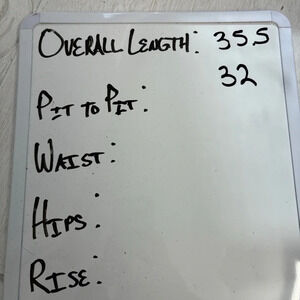 OVERALL LENGTH: 35.5
32
PIT TO PIT:
WAIST:
HIPS:
RISE: